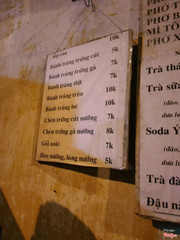 10k
Bánh tráng trứng cút 5k
Bánh tráng trứng gà 7k
Bánh tráng thịt 7k
Bánh tráng trộn 10k
Bánh tráng bơ
Chén trứng cút nướng 7k
Chén trứng gà nướng 8k
Gỏi xoài 7k
nướng, lòng nướng 5k
PHO
PHO B
MÌ TÔ
PHỞ X
Trà thá
Trà sữa
(dâo,
Soda Ý
(dâo,
dưa lư
Trà đà
Đậu nà